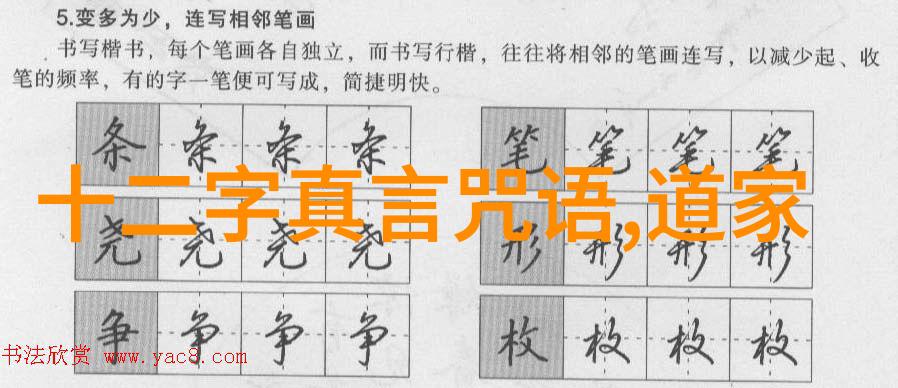 5.变多为少，连写相邻笔画
书写楷书，每个笔画各自独立，而书写行楷，往往将相邻的笔画连写，以减少起、收
笔的频率，有的字一笔便可写成，简捷明快。
条 条 条 条 笔 笔 笔 笔
十二字真言咒语,道家
尧 尧 尧 尧 形 形 形 形
争 争 争 争 枚 枚 枚 枚
书法欣赏 www.yac8.com